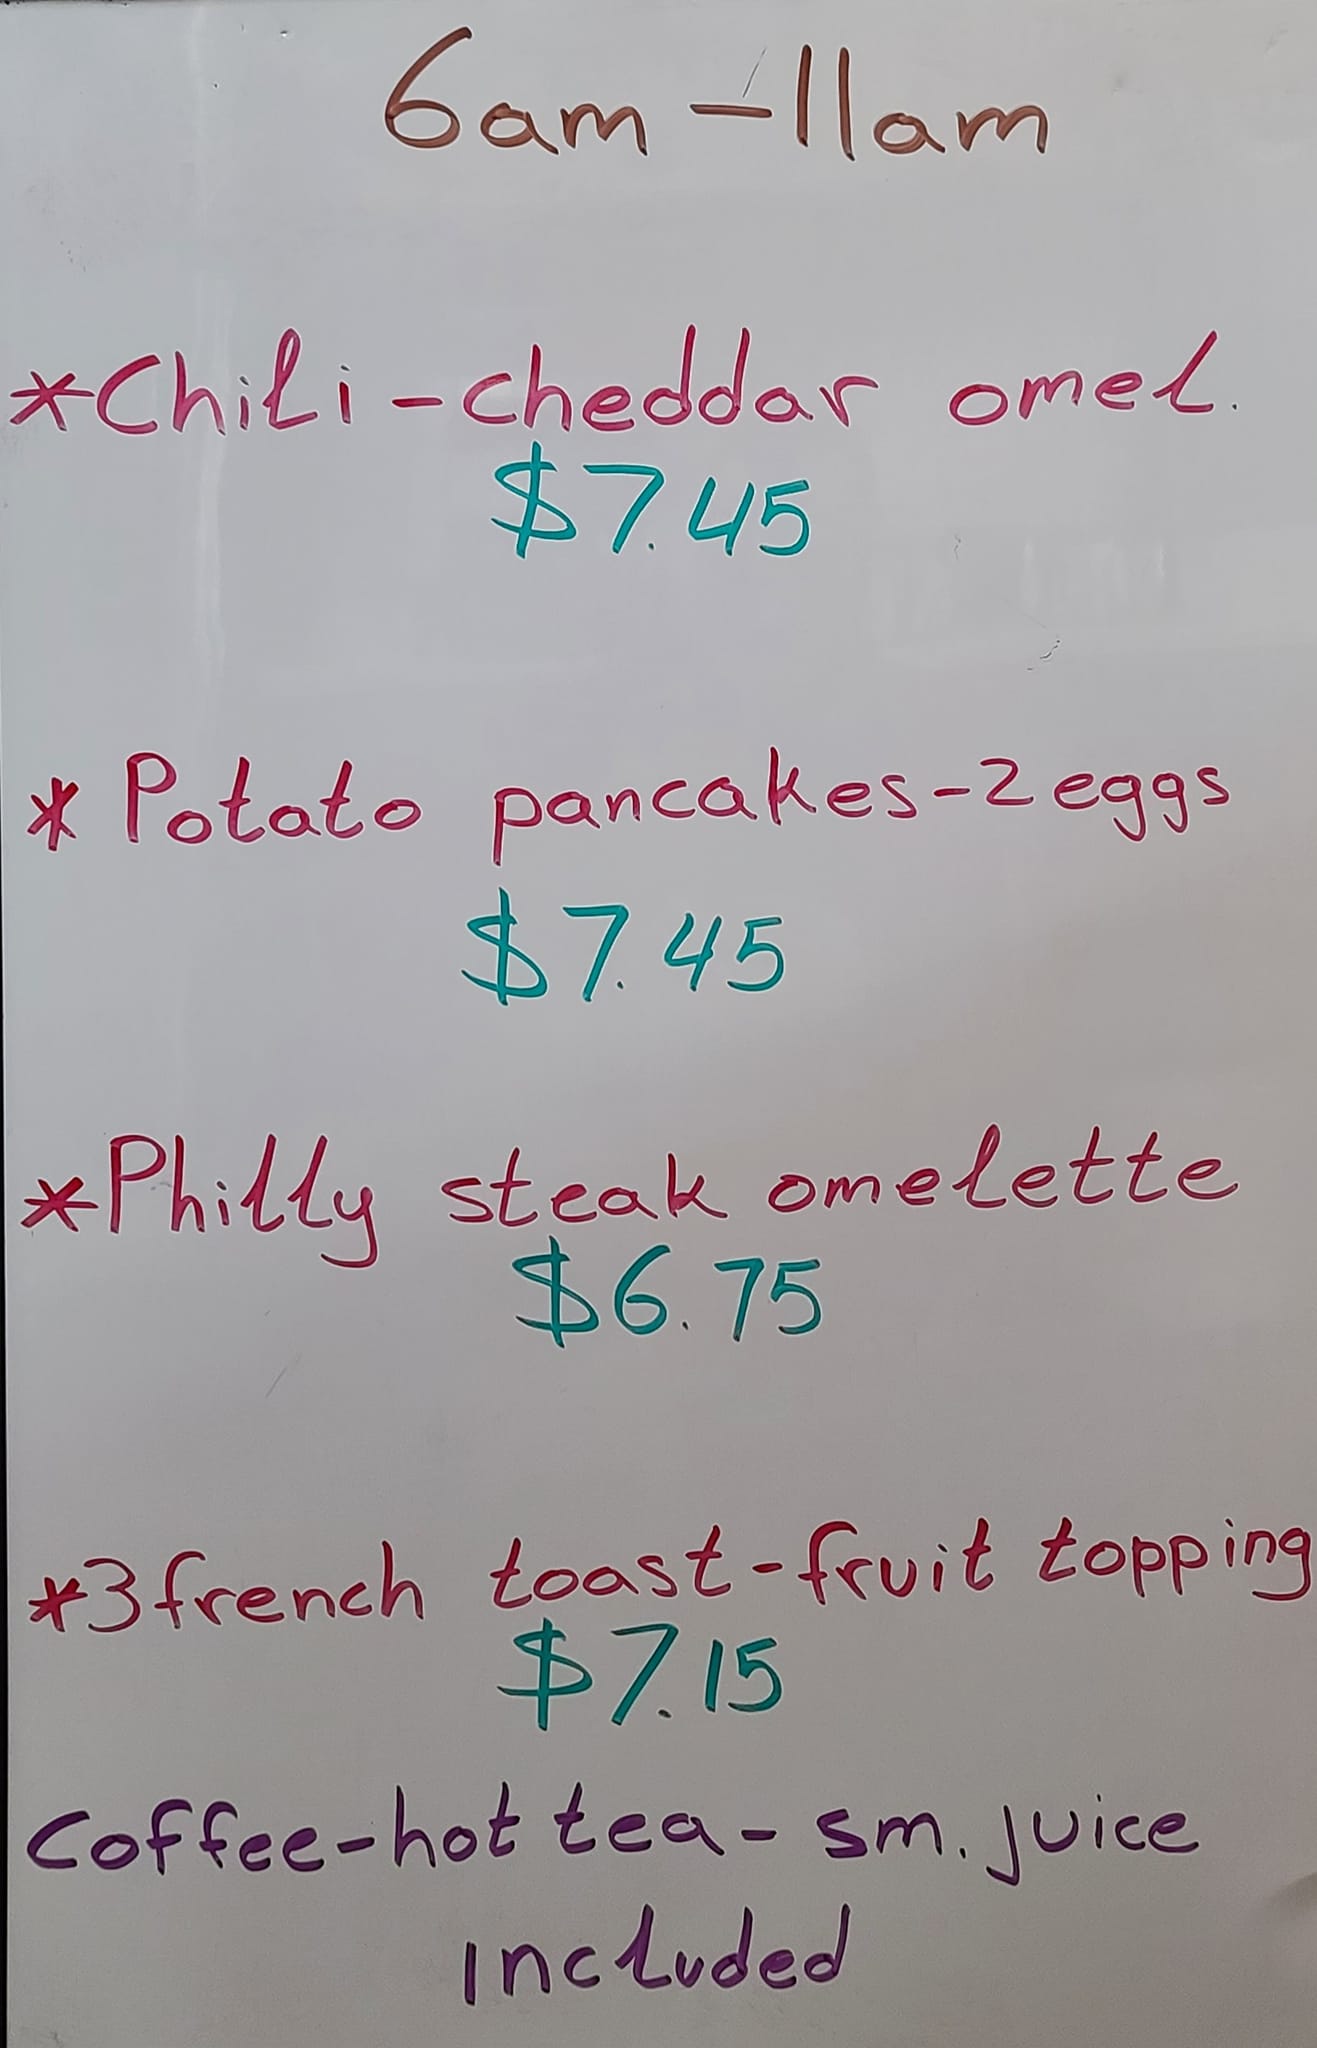 6am - 11am
*Chili - cheddar omel.
$7.45
* Potato pancakes - 2 eggs
$7.45
*Philly steak omelette
$6.75
*3 french toast - fruit topping
$7.15
Coffee - hot tea - sm. juice
included